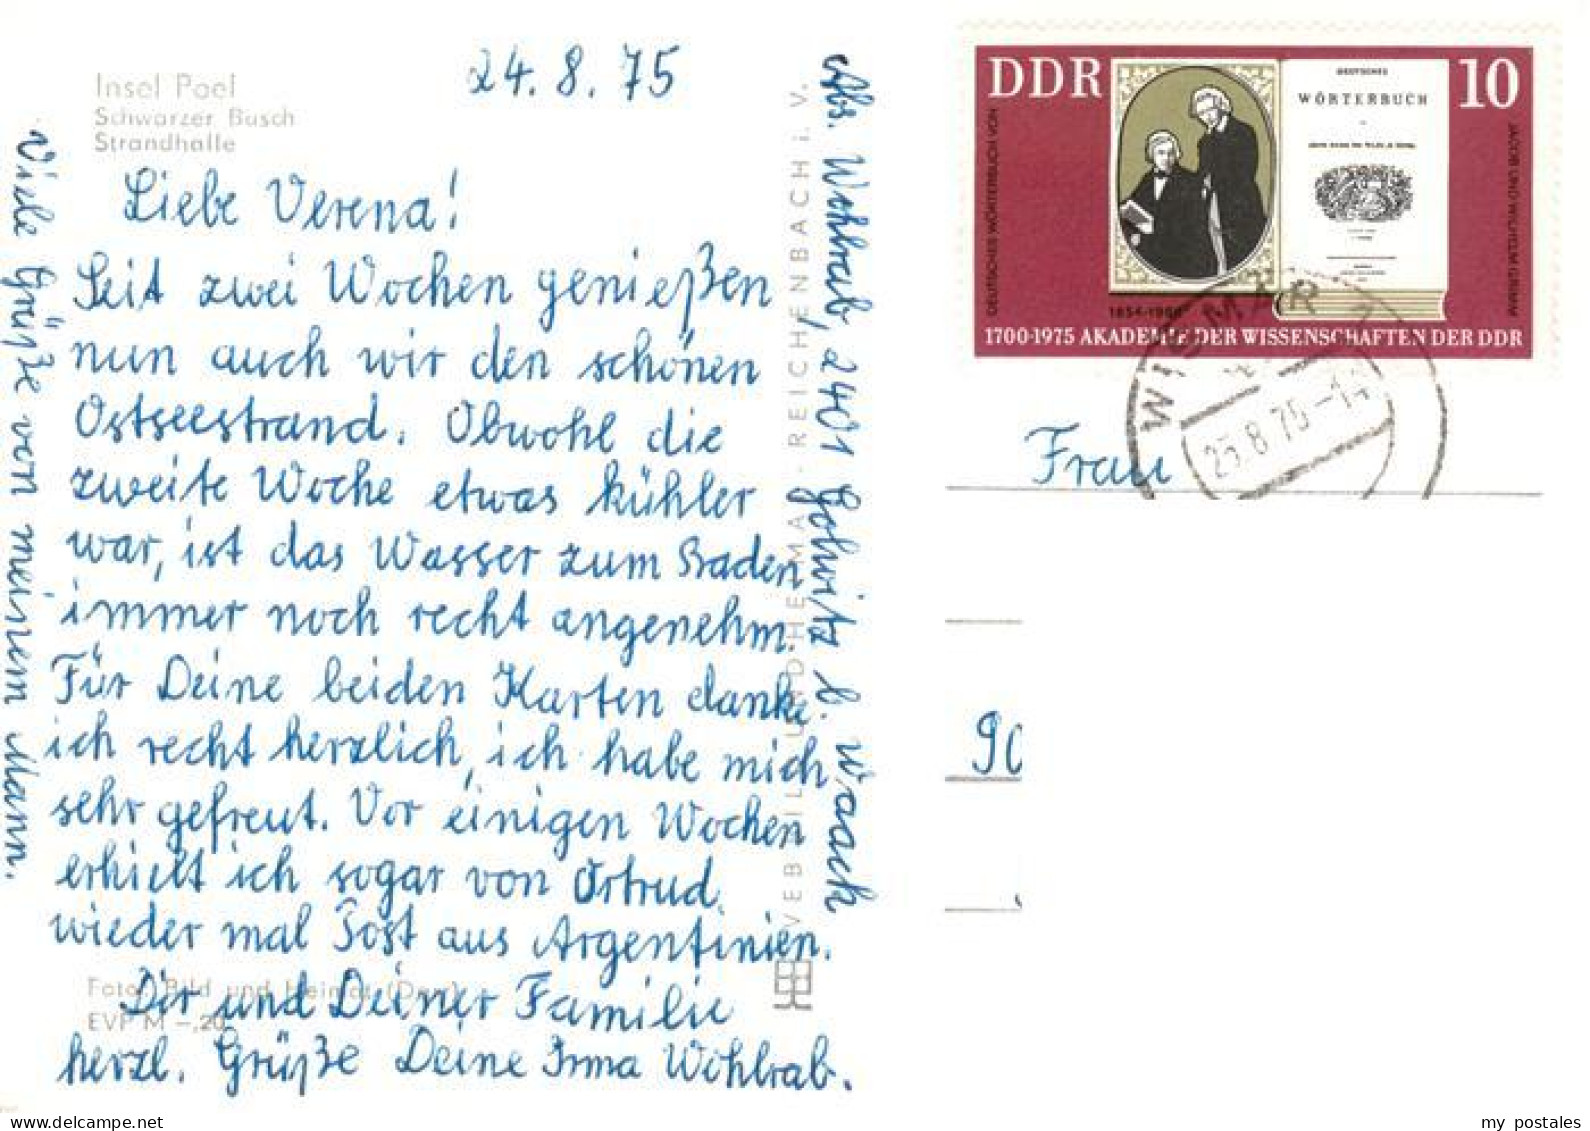 Insel Poel
Schwarzer Busch
Strandhalle
24. 8. 75
Liebe Verena!
Seit zwei Wochen genießen
nun auch wir den schönen
Ostseestrand. Obwohl die
zweite Woche etwas kühler
war, ist das Wasser zum Baden
immer noch recht angenehm.
Für Deine beiden Karten danke
ich recht herzlich, ich habe mich
sehr gefreut. Vor einigen Wochen
erhielt ich sogar von Ortrud
wieder mal Post aus Argentinien.
Dir und Deiner Familie
herzl. Grüße Deine Irma Wohlrab.
Viele Grüße von meinem Mann.
Abs. Wohlrab, 2401 Gollwitz b. Waack
Foto: Bild und Heimat
EVP M –,20
VEB BILD UND HEIMAT REICHENBACH i. V.
DDR
10
DEUTSCHES WÖRTERBUCH VON
JACOB UND WILHELM GRIMM
DEUTSCHES
WÖRTERBUCH
1700-1975 AKADEMIE DER WISSENSCHAFTEN DER DDR
WISMAR
25.8.75-14
Frau
90
my postales